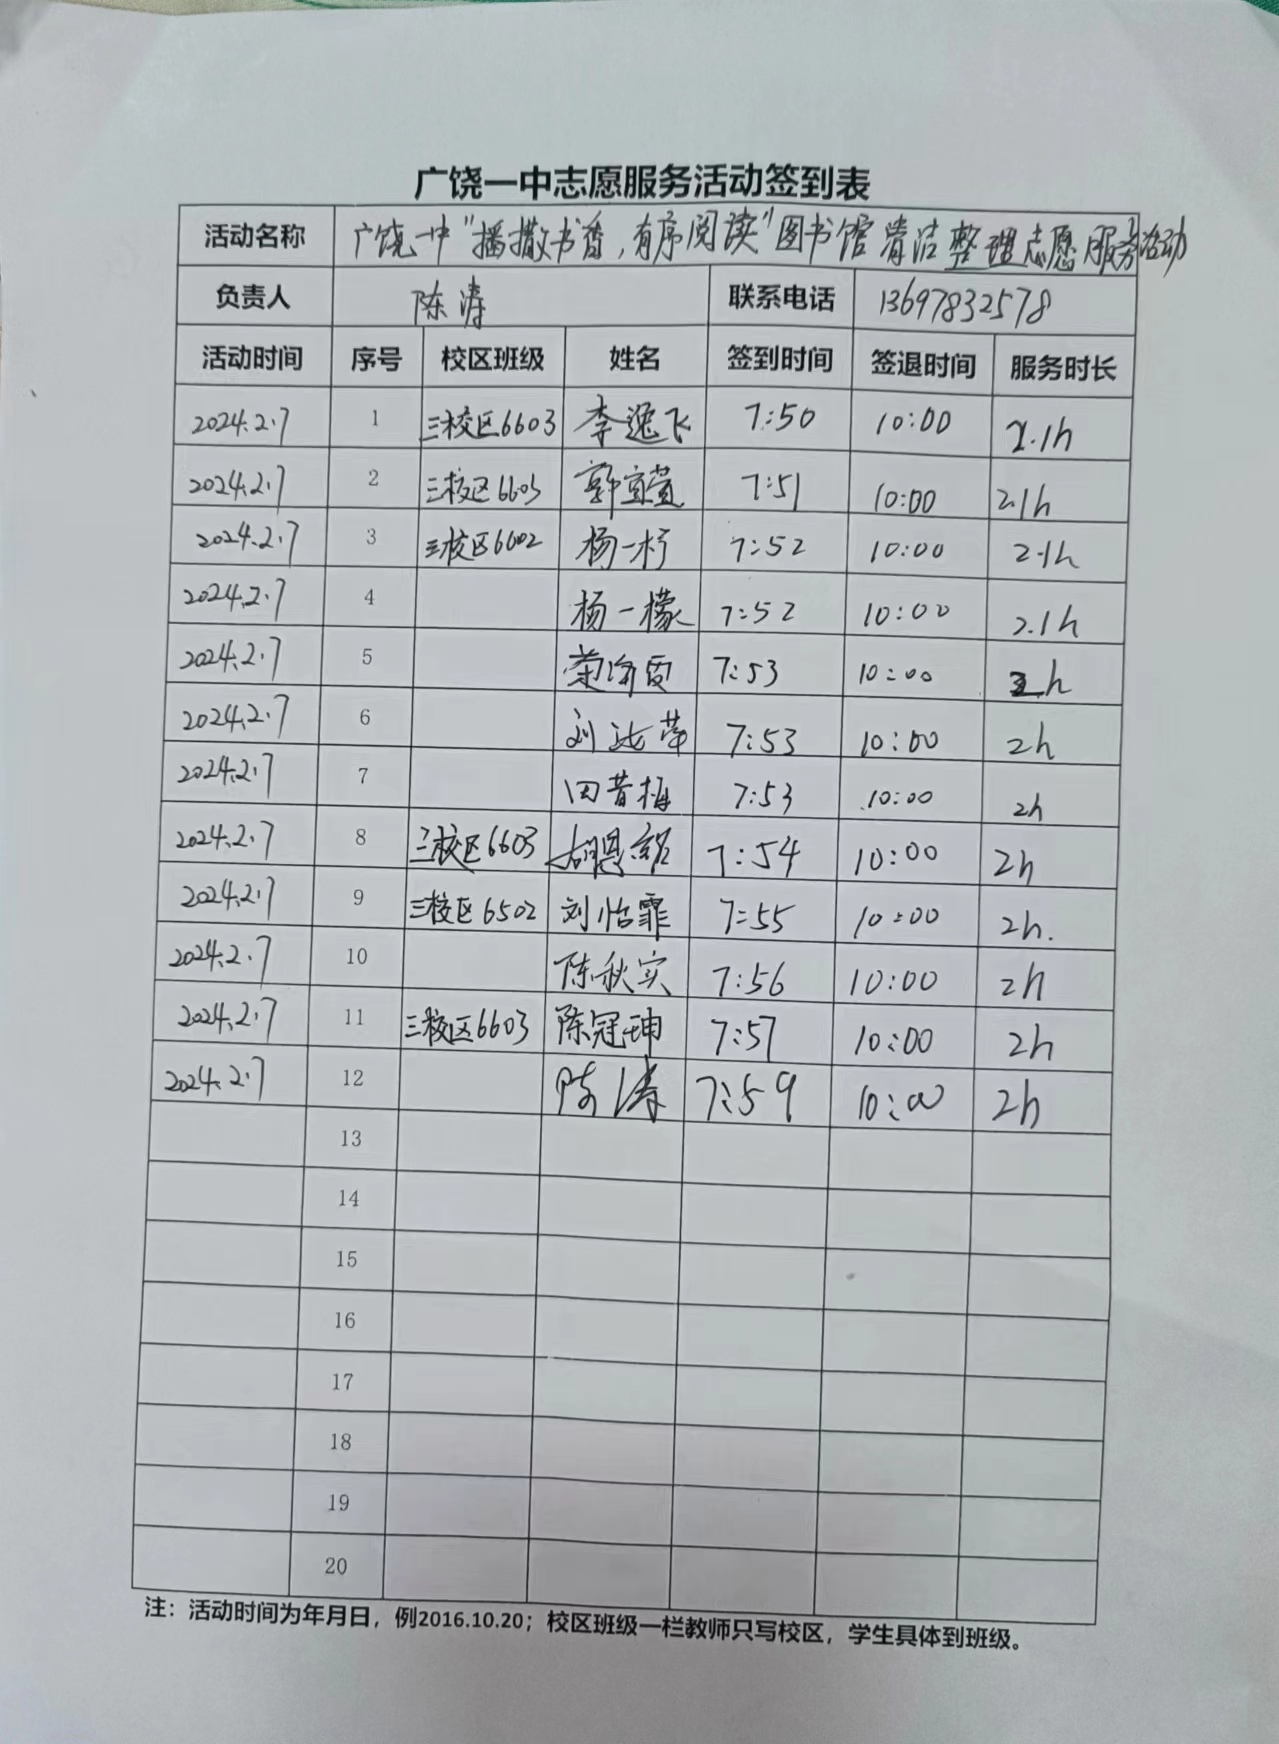 广饶一中志愿服务活动签到表
活动名称 广饶一中"播撒书香,有序阅读"图书馆清洁整理志愿服务活动
负责人 陈涛 联系电话 13697832578
活动时间 序号 校区班级 姓名 签到时间 签退时间 服务时长
2024.2.7 1 三校区6603 李逸飞 7:50 10:00 2.1h
2024.2.7 2 三校区6603 7:51 10:00 2.1h
2024.2.7 3 三校区6602 杨一 7:52 10:00 2.1h
2024.2.7 4 杨一檬 7:52 10:00 2.1h
2024.2.7 5 7:53 10:00 2h
2024.2.7 6 刘 7:53 10:00 2h
2024.2.7 7 田 7:53 10:00 2h
2024.2.7 8 三校区6603 7:54 10:00 2h
2024.2.7 9 三校区6502 刘怡霏 7:55 10:00 2h.
2024.2.7 10 陈秋实 7:56 10:00 2h
2024.2.7 11 三校区6603 陈冠珅 7:57 10:00 2h
2024.2.7 12 陈涛 7:59 10:00 2h
13
14
15
16
17
18
19
20
注：活动时间为年月日，例2016.10.20；校区班级一栏教师只写校区，学生具体到班级。